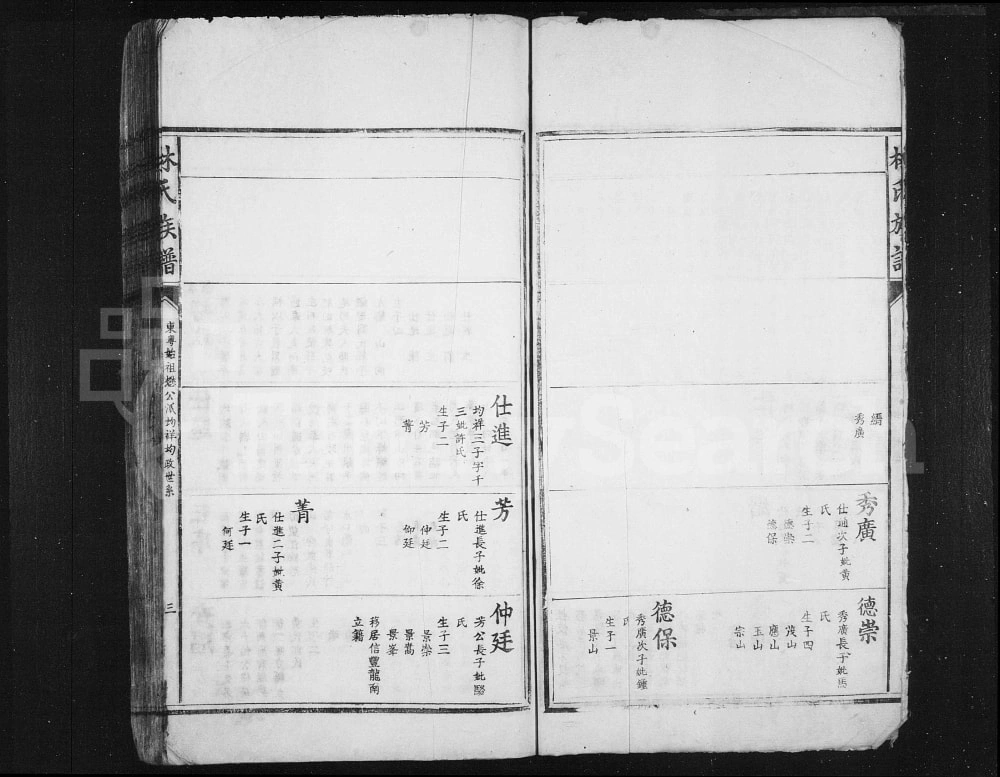 林氏族譜
縉
秀廣
秀廣
仕通次子妣黃
氏
生子二
德崇
德保
德崇
秀廣長子妣馬
氏
生子四
茂山
應山
玉山
宗山
德保
秀廣次子妣鍾
氏
生子一
景山
仕進
均祥三子字千
三妣許氏
生子二
芳
菁
芳
仕進長子妣徐
氏
生子二
仲廷
仰廷
菁
仕進二子妣黃
氏
生子一
何廷
仲廷
芳公長子妣駱
氏
生子三
景崇
景嵩
景峯
移居信豐龍南
立籍
林氏族譜
東粵始祖懋公派均祥均政世系
三